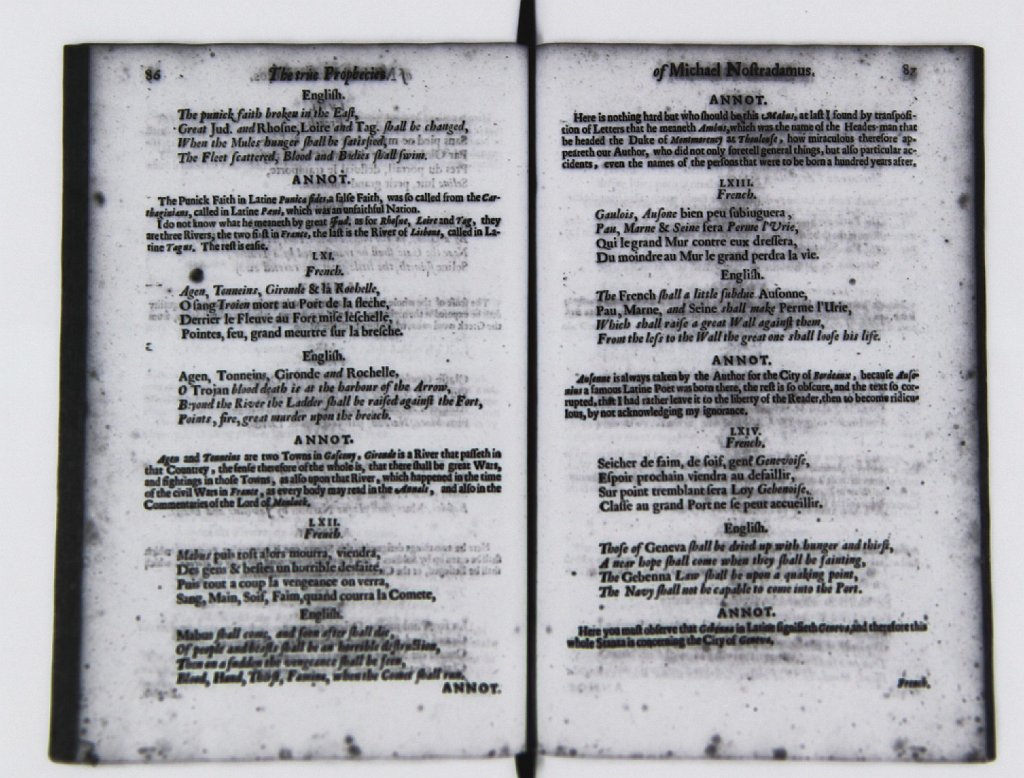 86 The true Prophecies
Engliſh.
The punick faith broken in the Eaſt,
Great Jud. and Rhoſne, Loire and Tag. ſhall be changed,
When the Mules hunger ſhall be ſatisfied,
The Fleet ſcattered, Blood and Bodies ſhall ſwim.
ANNOT.
The Punick Faith in Latine Punica fides, a falſe Faith, was ſo called from the Car-
thaginians, called in Latine Pœni, which was an unfaithful Nation.
I do not know what he meaneth by great Jud, as for Rhoſne, Loire and Tag, they
are three Rivers, the two firſt in France, the laſt is the River of Lisbone, called in La-
tine Tagus. The reſt is eaſie.
LXI.
French.
Agen, Tonneins, Gironde & la Rochelle,
O ſang Troien mort au Port de la fleche,
Derrier le Fleuve au Fort miſe leſchelle,
Pointes, feu, grand meurtre ſur la breſche.
Engliſh.
Agen, Tonneins, Gironde and Rochelle,
O Trojan blood death is at the harbour of the Arrow,
Beyond the River the Ladder ſhall be raiſed againſt the Fort,
Points, fire, great murder upon the breach.
ANNOT.
Agen and Tonneins are two Towns in Gaſcony, Gironde is a River that paſſeth in
that Countrey, the ſenſe therefore of the whole is, that there ſhall be great Wars,
and fightings in thoſe Towns, as alſo upon that River, which happened in the time
of the civil Wars in France, as every body may read in the Annals, and alſo in the
Commentaries of the Lord of Monluck.
LXII.
French.
Mabus puis toſt alors mourra, viendra,
Des gens & beſtes un horrible desfaite,
Puis tout a coup la vengeance on verra,
Sang, Main, Soif, Faim, quand courra la Comete,
Engliſh.
Mabus ſhall come, and ſoon after ſhall die,
Of people and beaſts ſhall be an horrible deſtruction,
Then on a ſudden the vengeance ſhall be ſeen,
Blood, Hand, Thirſt, Famine, when the Comet ſhall run.
ANNOT.
of Michael Noſtradamus. 87
ANNOT.
Here is nothing hard but who ſhould be this Mabus, at laſt I found by tranſpoſi-
tion of Letters that he meaneth Ambus, which was the name of the Heades-man that
be headed the Duke of Montmorency at Thoulouſe, how miraculous therefore ap-
peareth our Author, who did not only foretell general things, but alſo particular ac-
cidents, even the names of the perſons that were to be born a hundred years after.
LXIII.
French.
Gaulois, Auſone bien peu ſubiuguera,
Pau, Marne & Seine fera Perme l'Vrie,
Qui le grand Mur contre eux dreſſera,
Du moindre au Mur le grand perdra la vie.
Engliſh.
The French ſhall a little ſubdue Auſonne,
Pau, Marne, and Seine ſhall make Perme l'Urie,
Which ſhall raiſe a great Wall againſt them,
From the leſs to the Wall the great one ſhall looſe his life.
ANNOT.
Auſonne is always taken by the Author for the City of Bordeaux, because Auſo-
nius a famous Latine Poet was born there, the reſt is ſo obſcure, and the text ſo cor-
rupted, that I had rather leave it to the liberty of the Reader, then to become ridicu-
lous, by not acknowledging my ignorance.
LXIV.
French.
Seicher de faim, de ſoif, gent Genevoiſe,
Eſpoir prochain viendra au defaillir,
Sur point tremblant ſera Loy Gebenoiſe,
Claſſe au grand Port ne ſe peut accueillir.
Engliſh.
Thoſe of Geneva ſhall be dried up with hunger and thirſt,
A near hope ſhall come when they ſhall be fainting,
The Gebenna Law ſhall be upon a quaking point,
The Navy ſhall not be capable to come into the Port.
ANNOT.
Here you muſt obſerve that Gebenna in Latine ſignifieth Geneva, and therefore this
whole Stanza is concerning the City of Geneva.
French.